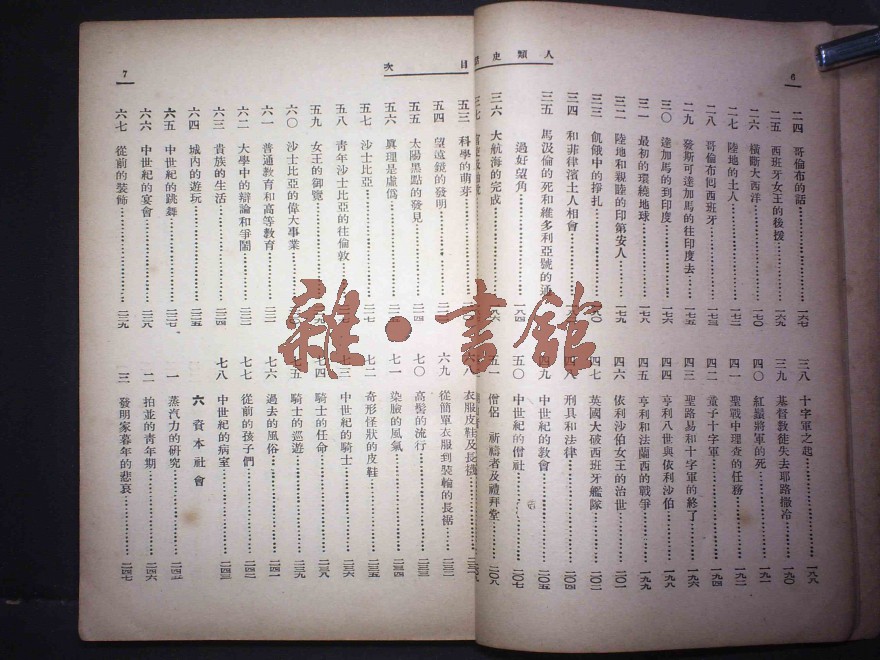 人類史
6
二四 哥倫布的話 一六七
二五 西班牙女王的後援 一六九
二六 橫斷大西洋 一七〇
二七 陸地的土人 一七二
二八 哥倫布囘西班牙 一七三
二九 發斯可達加馬的往印度去 一七五
三〇 達加馬的到印度 一七六
三一 最初的環繞地球 一七八
三二 陸地和親睦的印第安人 一七九
三三 飢餓中的掙扎 一八〇
三四 和菲律濱土人相會
三五 馬汲倫的死和維多利亞號的通
過好望角 一八四
三六 大航海的完成
三七
三八 十字軍之起 一八八
三九 基督敎徒失去耶路撒冷 一九〇
四〇 紅鬍將軍的死 一九一
四一 聖戰中理查的任務 一九二
四二 童子十字軍 一九四
四三 聖路易和十字軍的終了 一九六
四四 亨利八世與依利沙伯 一九八
四五 亨利和法蘭西的戰爭 一九九
四六 依利沙伯女王的治世 二〇一
四七 英國大破西班牙艦隊 二〇二
四八 刑具和法律 二〇四
四九 中世紀的敎會 二〇五
五〇 中世紀的僧社 二〇七
五一 僧侶 祈禱者及禮拜堂 二〇八
目次
7
五三 科學的萌芽
五四 望遠鏡的發明
五五 太陽黑點的發見 二一四
五六 眞理是虛僞
五七 沙士比亞 二一七
五八 靑年沙士比亞的往倫敦
五九 女王的御覽
六〇 沙士比亞的偉大事業
六一 普通敎育和高等敎育
六二 大學中的辯論和爭鬧
六三 貴族的生活 二二四
六四 城內的遊玩 二二五
六五 中世紀的跳舞 二二七
六六 中世紀的宴會 二二八
六七 從前的裝飾 二二九
六八 衣服皮鞋及長襪
六九 從簡單衣服到裝輪的長裾 二三二
七〇 高髻的流行 二三三
七一 染臉的風氣 二三四
七二 奇形怪狀的皮鞋 二三五
七三 中世紀的騎士 二三六
七四 騎士的任命 二三八
七五 騎士的巡遊 二三九
七六 過去的風俗 二四一
七七 從前的孩子們 二四二
七八 中世紀的病室 二四三
六 資本社會
一 蒸汽力的硏究 二四五
二 拍並的靑年期 二四六
三 發明家暮年的悲哀 二四七
雜·書館